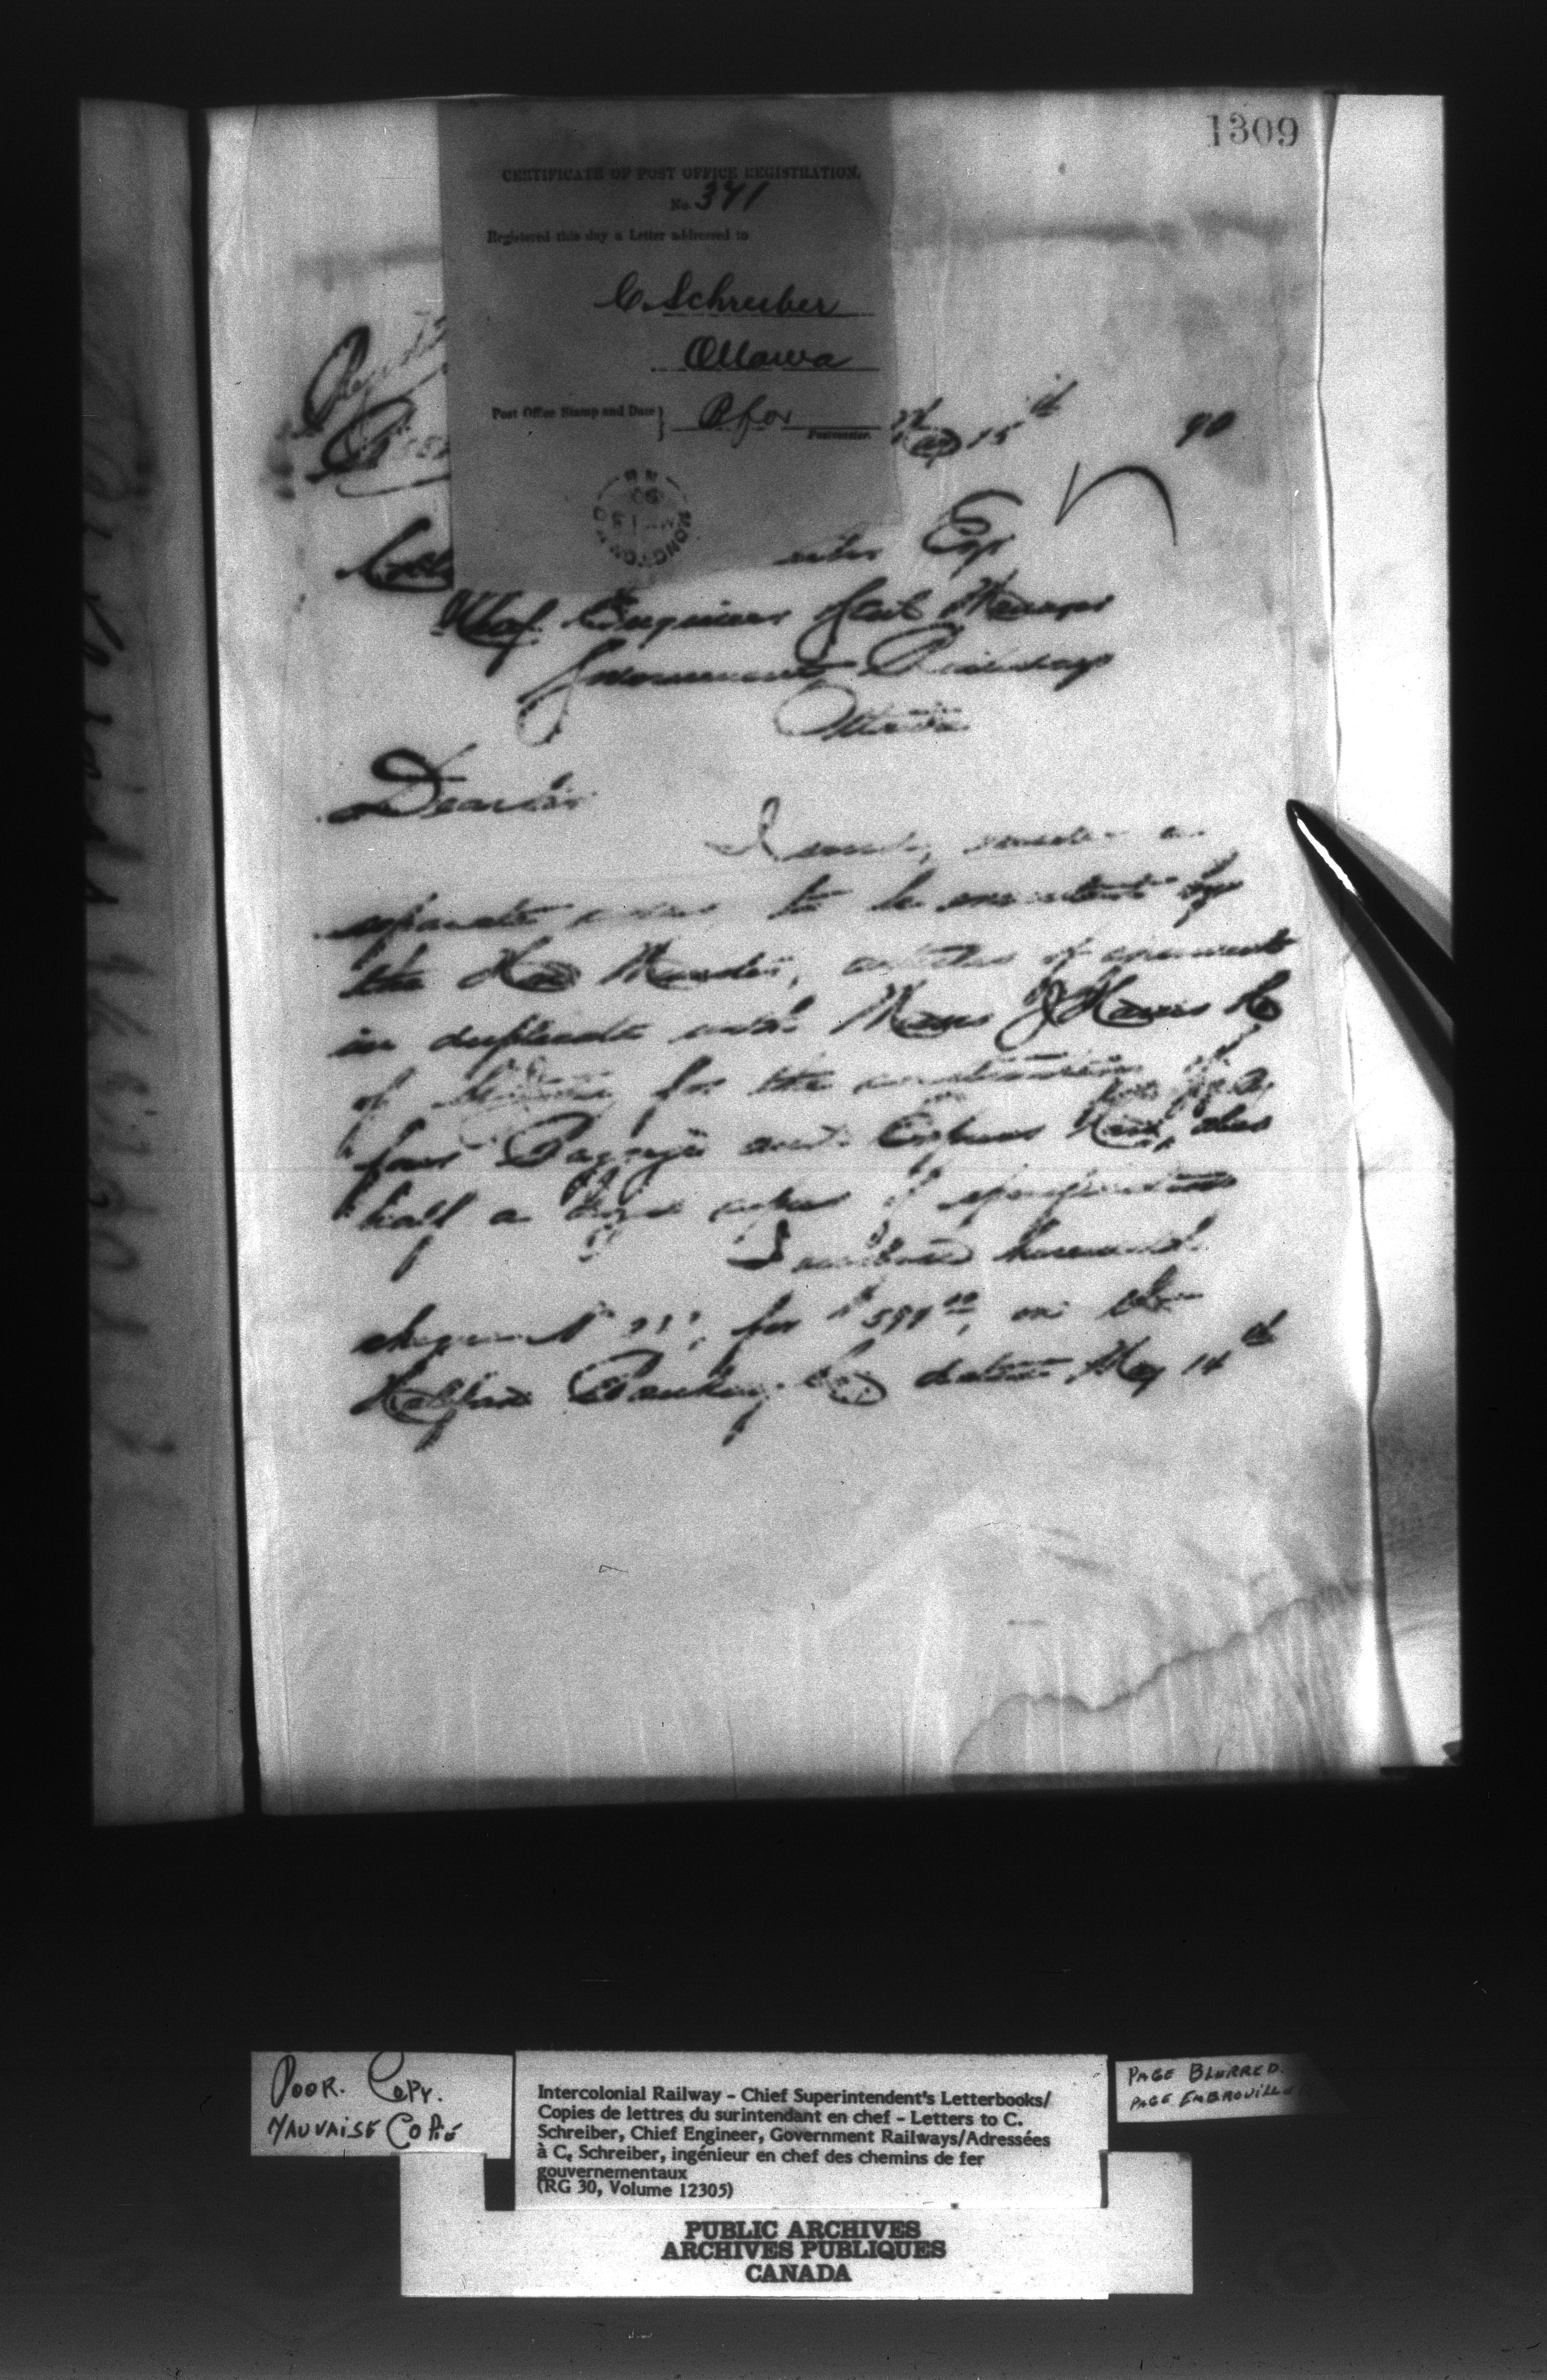 1309
CERTIFICATE OF POST OFFICE REGISTRATION.
No. 341
Registered this day a Letter addressed to
C. Schreiber
Ottawa
Post Office Stamp and Date }
Postmaster.
MONCTON
15th 90
Esqr
Chief Engineer & Genl Manager
Government Railways
Ottawa
Dear Sir
I send, under a
separate cover to be executed by
the Hon Minister, articles of agreement
in duplicate with Messrs J Harris & Co
of for the construction of
four Baggage and Express Cars, also
half a dozen copies of specifications
I enclose herewith
cheque No for $ on the
Halifax Banking Co dated May 14th
POOR. COPY.
MAUVAISE COPIE
Intercolonial Railway – Chief Superintendent's Letterbooks/
Copies de lettres du surintendant en chef – Letters to C.
Schreiber, Chief Engineer, Government Railways/Adressées
à C. Schreiber, ingénieur en chef des chemins de fer
gouvernementaux
(RG 30, Volume 12305)
PAGE BLURRED.
PAGE EMBROUILLE
PUBLIC ARCHIVES
ARCHIVES PUBLIQUES
CANADA